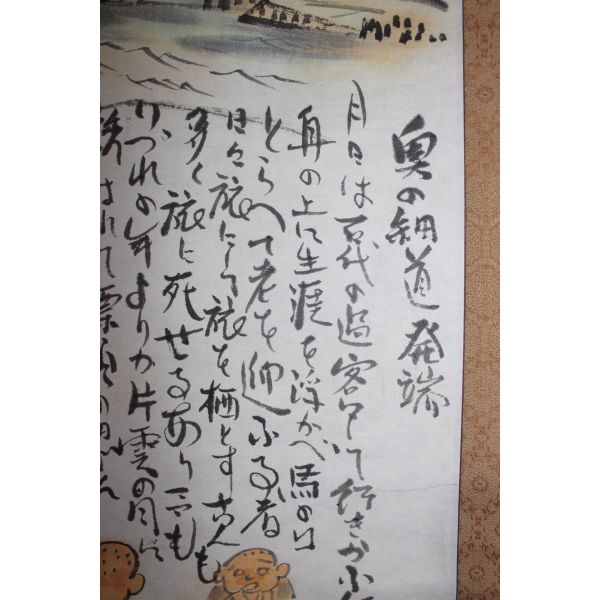 奥の細道発端
月日は百代の過客にして行きかふ
舟の上に生涯を浮かべ馬の口
とらへて老を迎ふる者
日々旅にして旅を栖とす古人も
多く旅に死せるあり予も
いづれの年よりか片雲の風に
誘はれて漂泊の思